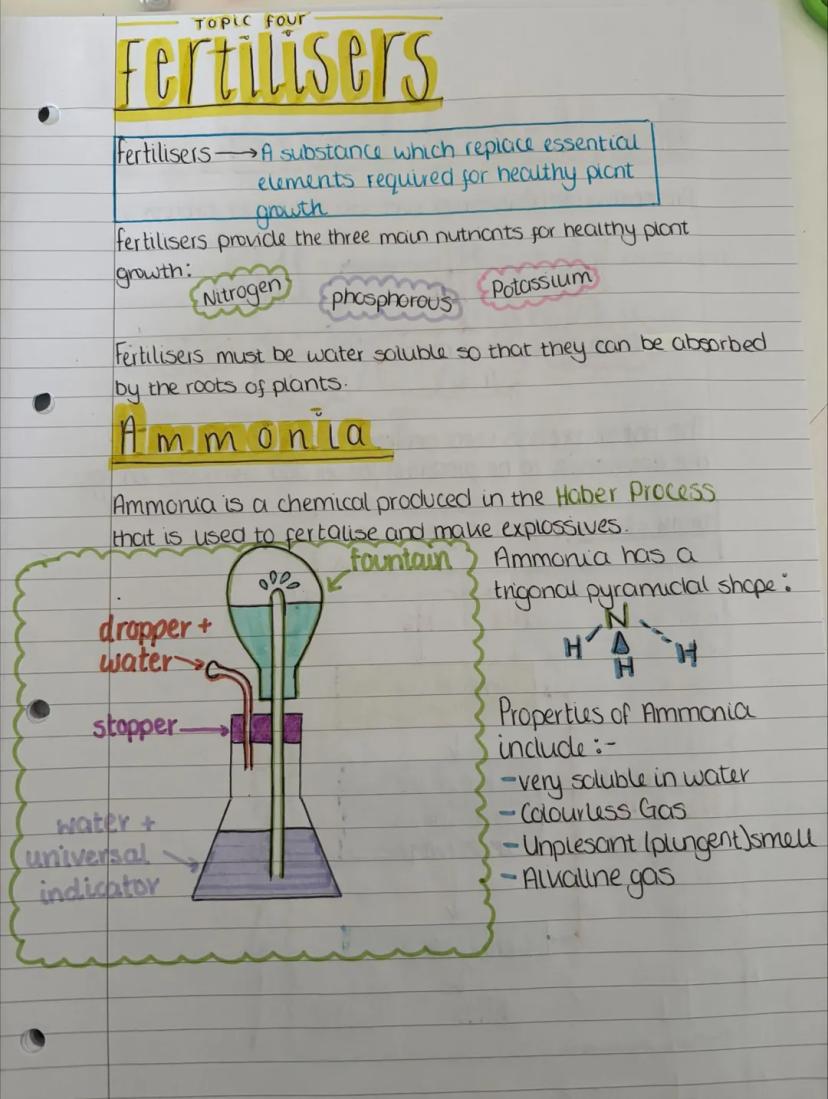 TOPIC FOUR
Fertilisers
fertilisers → A substance which replace essential
elements required for healthy plant
growth
fertilisers provide the three main nutrients for healthy plant
growth:
Nitrogen phosphorous Potassium
Fertilisers must be water soluble so that they can be absorbed
by the roots of plants.
Ammonia
Ammonia is a chemical produced in the Haber Process
that is used to fertalise and make explossives.
fountain
dropper +
water
stopper
water +
universal
indicator
Ammonia has a
trigonal pyramidal shape:
N
H H H
Properties of Ammonia
include :-
- very soluble in water
- Colourless Gas
- Unplesant (plungent) smell
- Alkaline gas